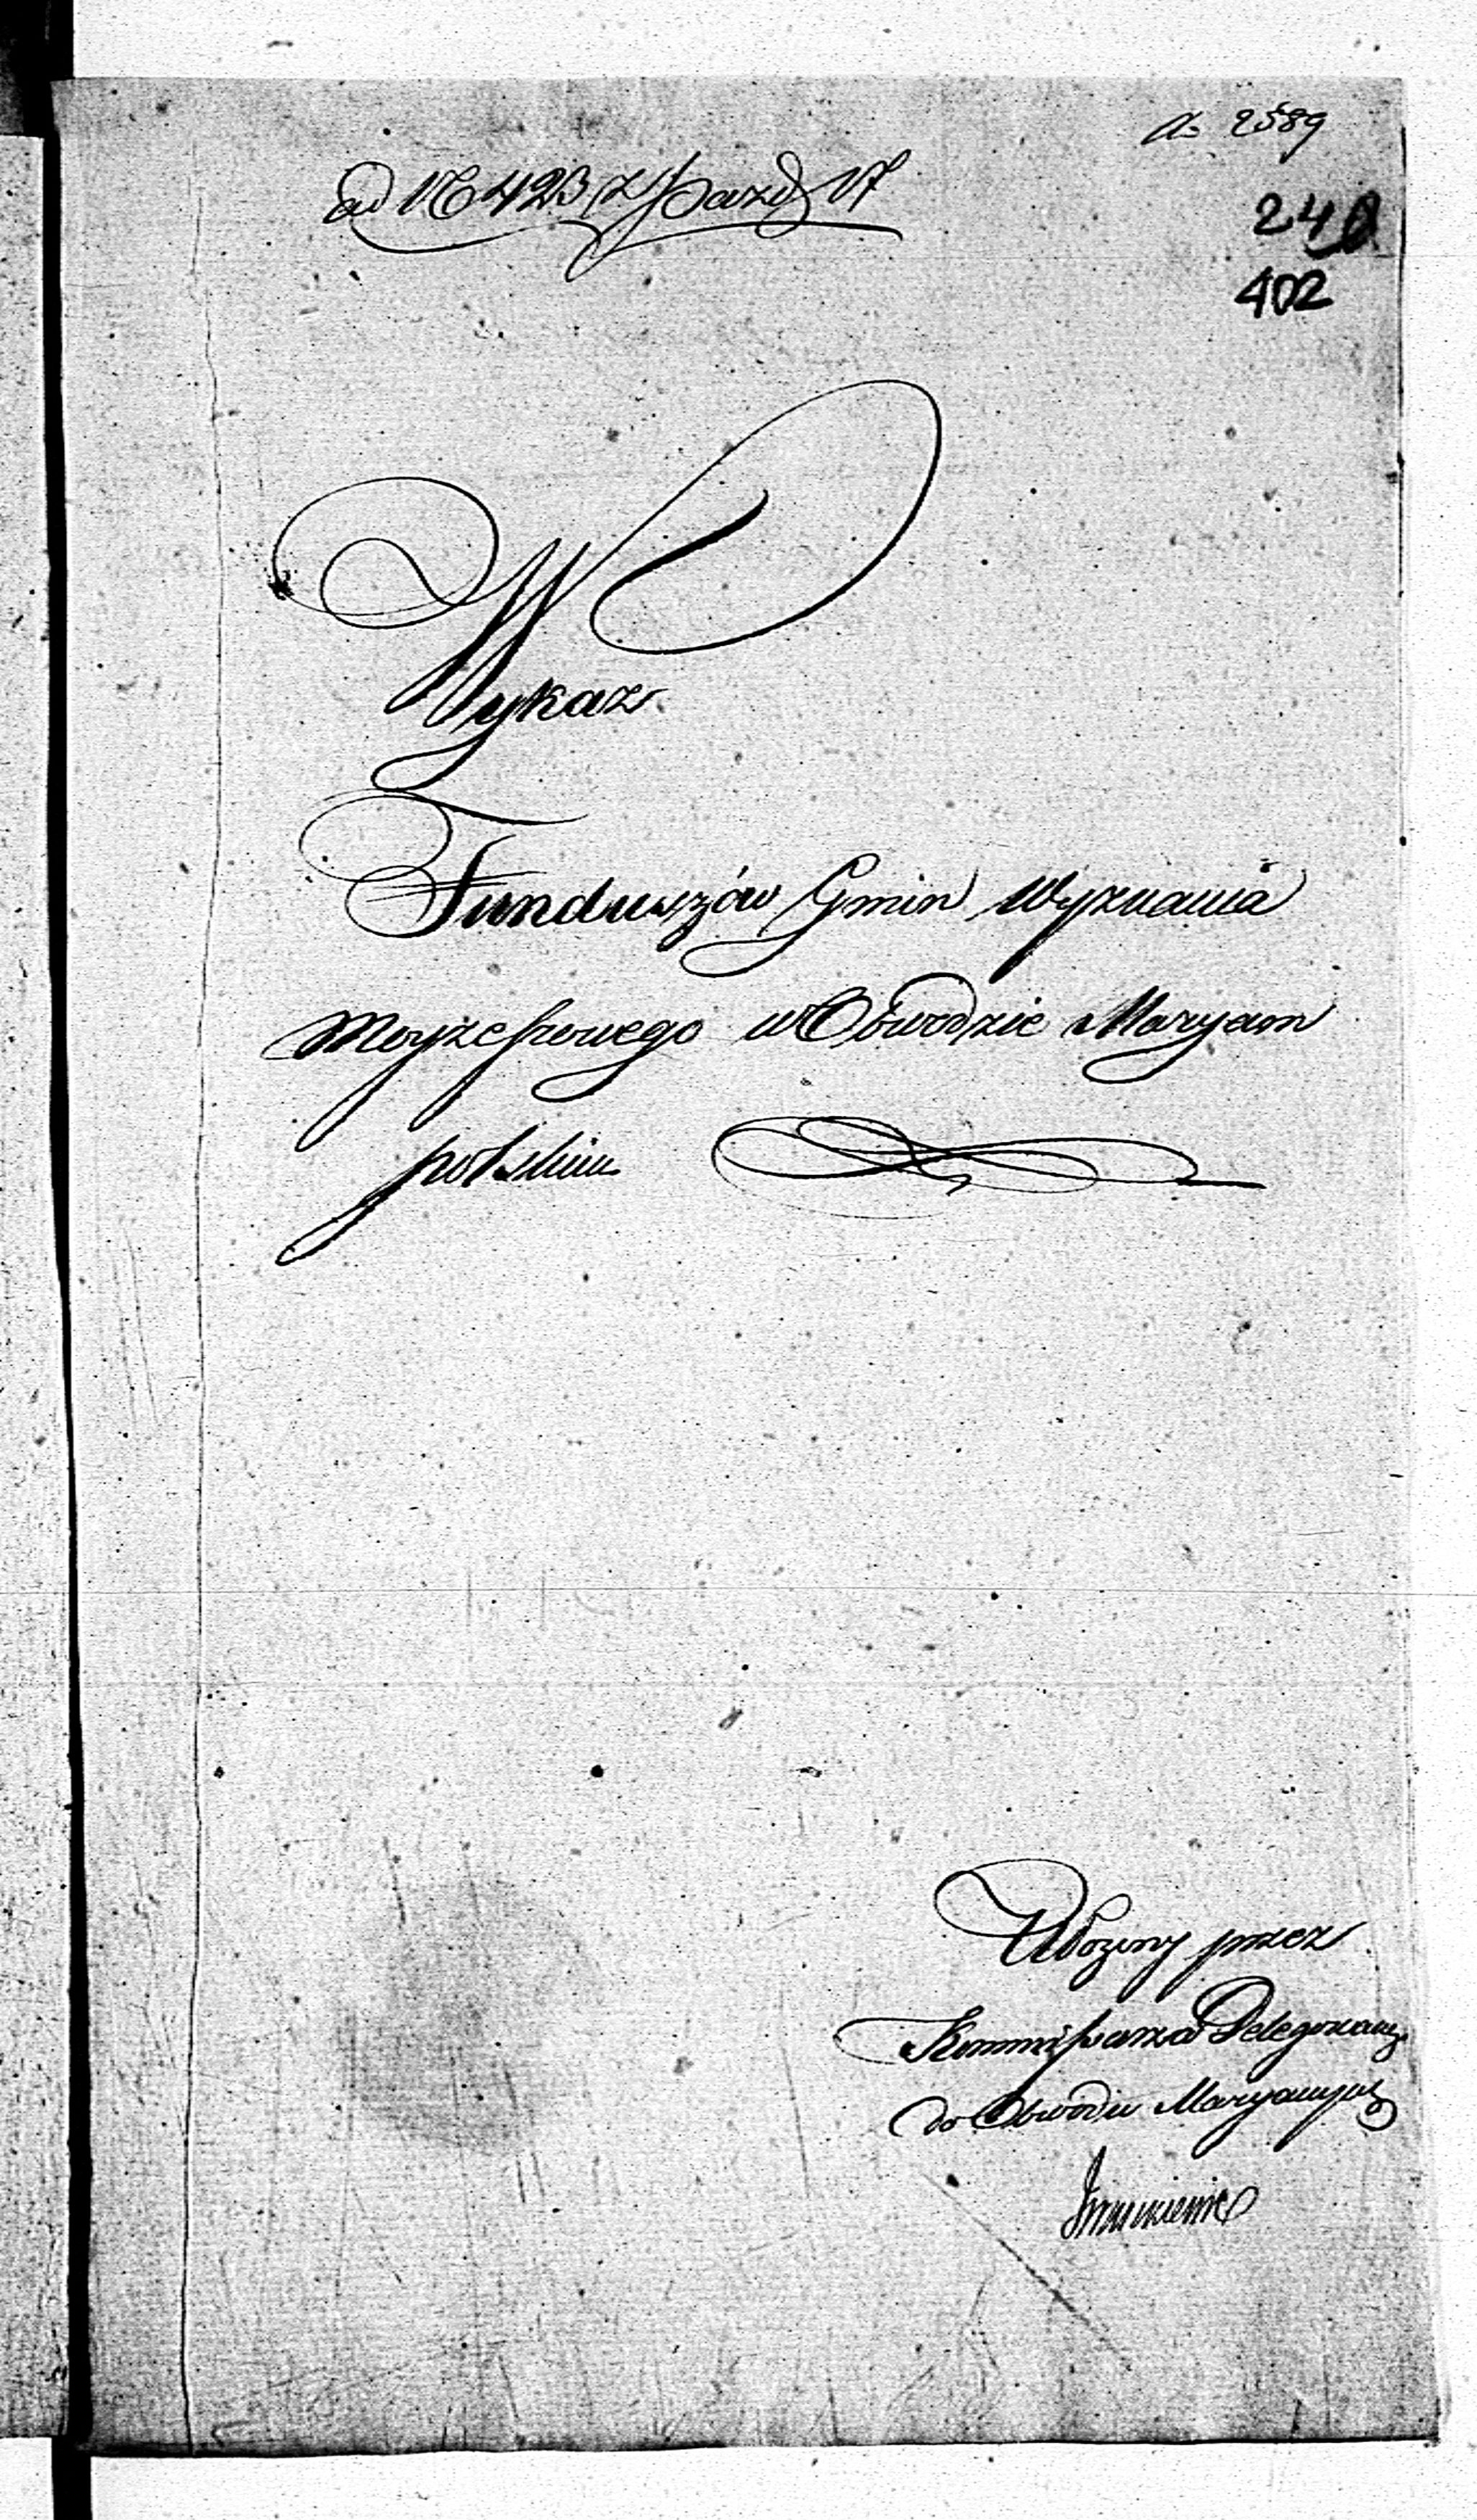 2589
ad N 423 z Pazdz 17
240
402
Wykaz
Funduszów Gmin Wyznania
Moyżeszowego w Obwodzie Maryam
polskim
Ułożony przez
Kommissarza Delegowaneg
do Obwodu Maryampol